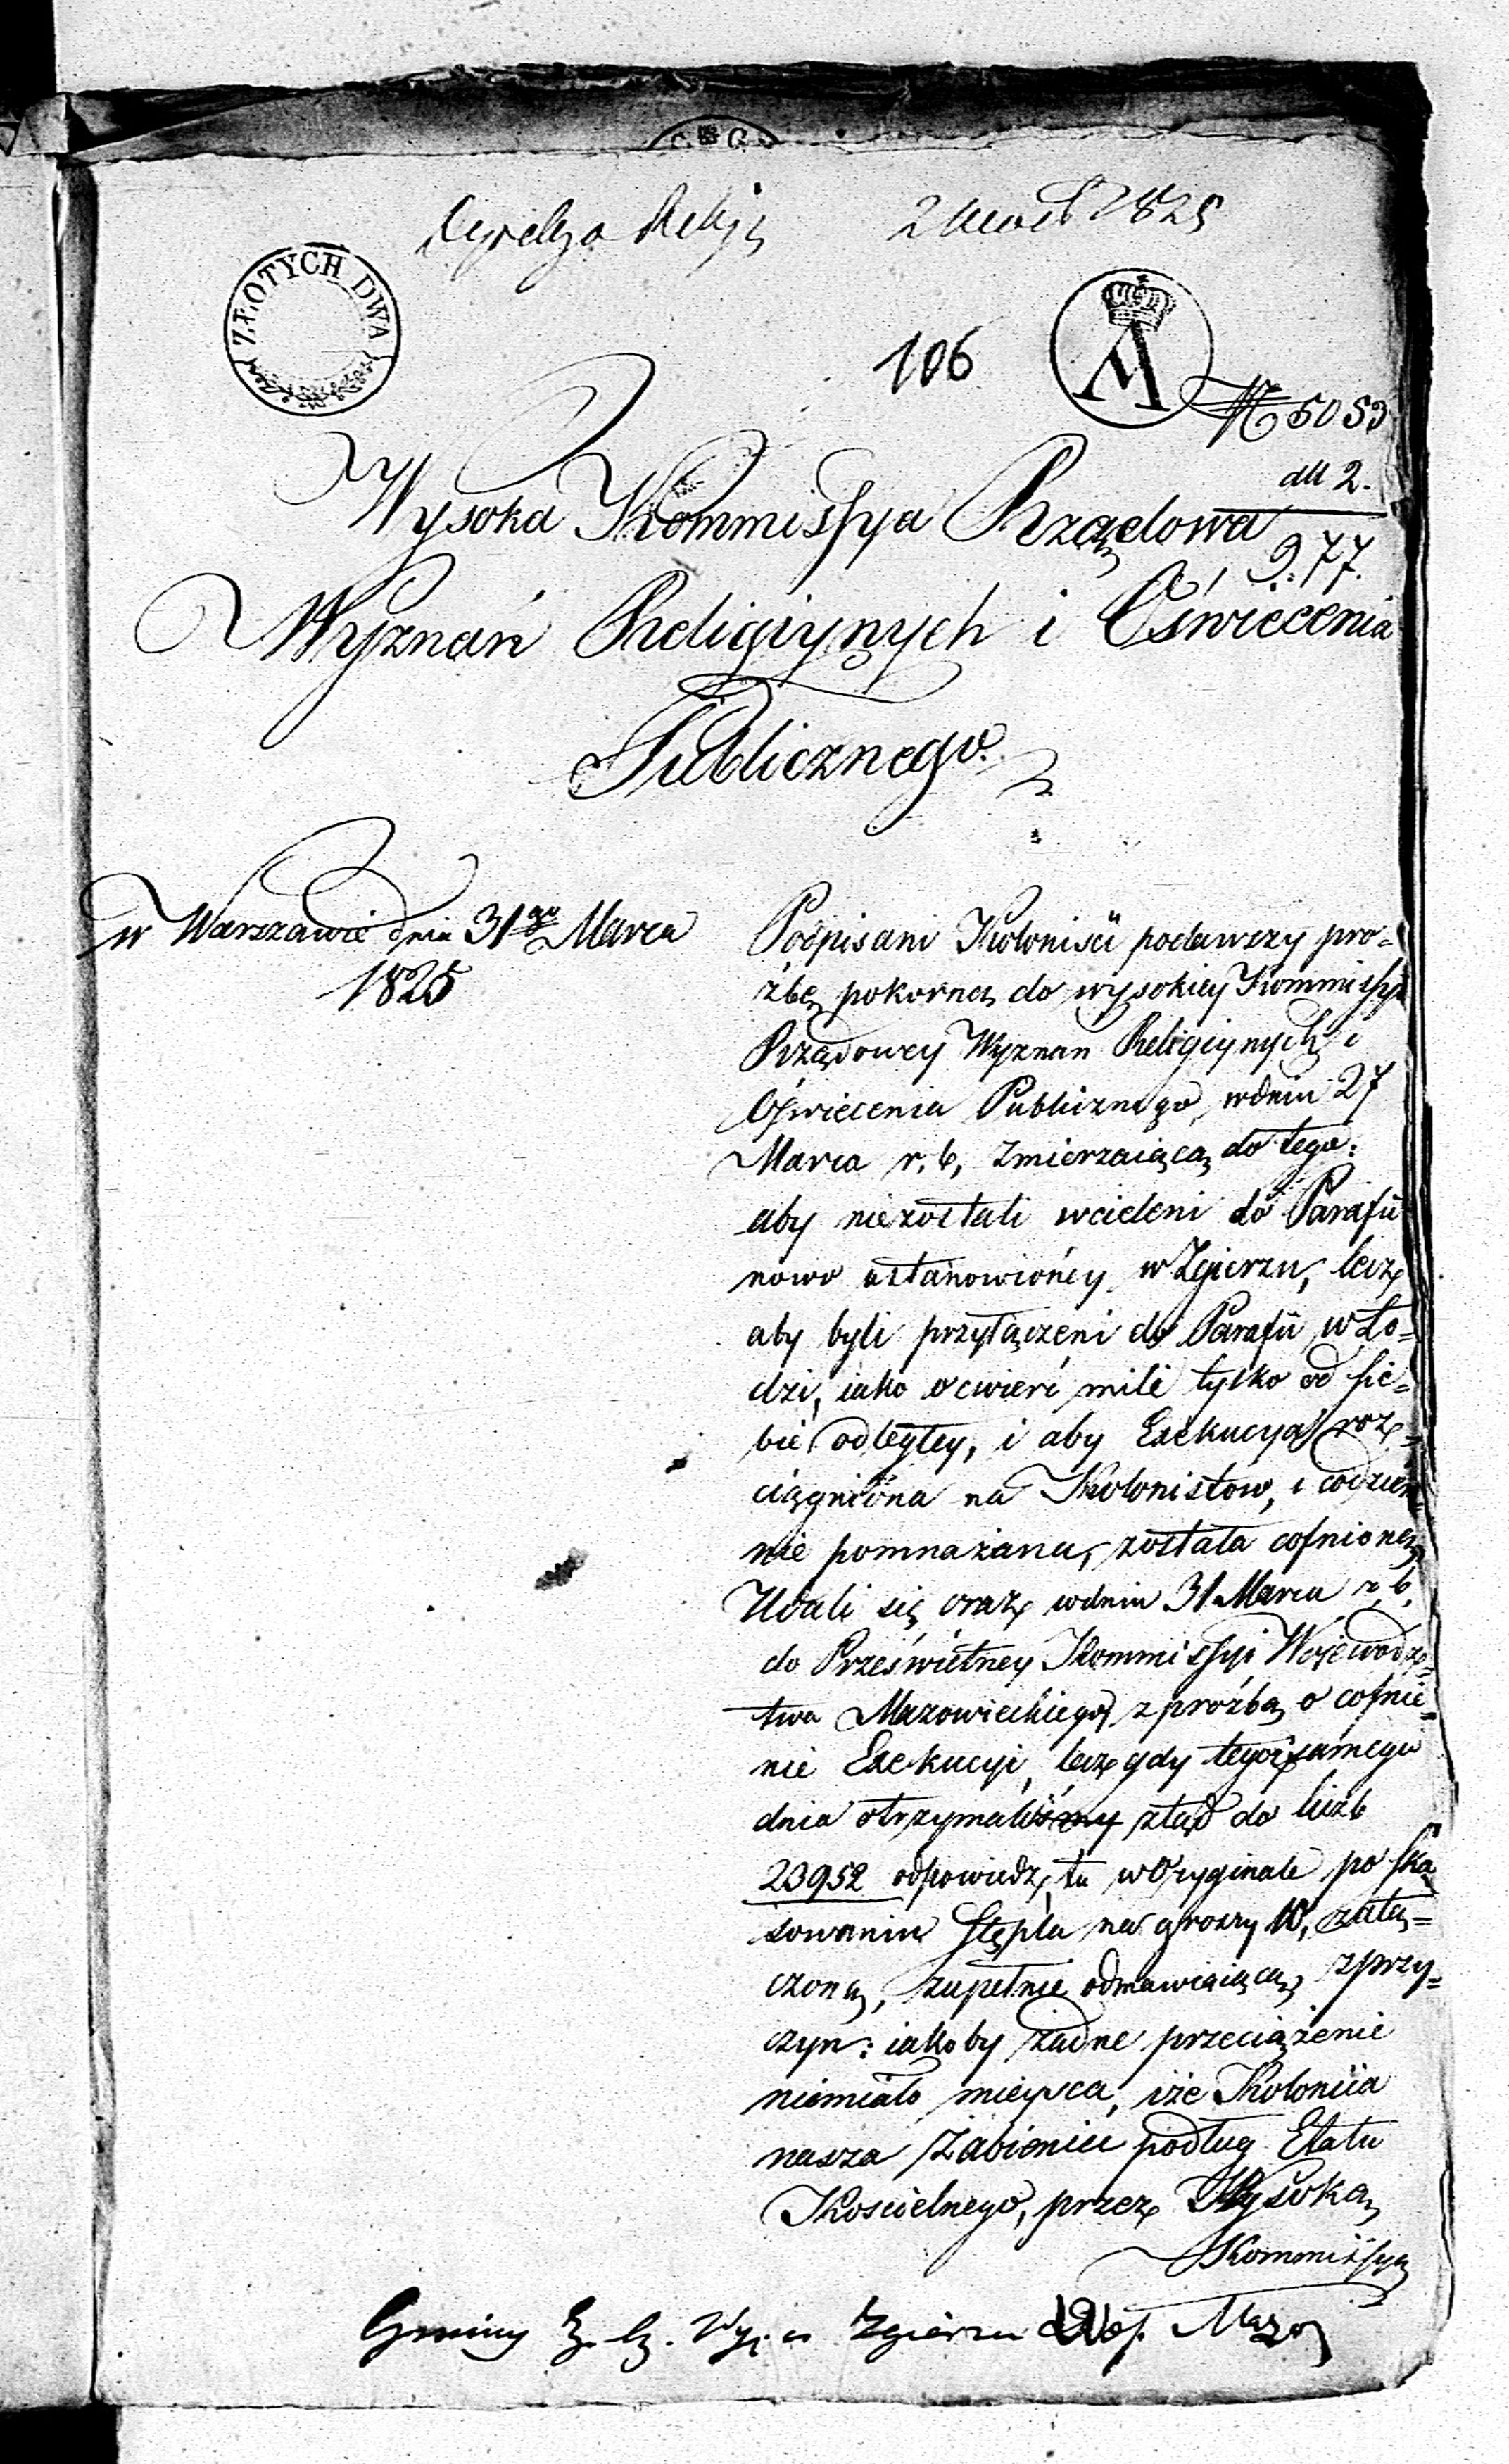 2 1825
ZŁOTYCH DWA
106
A
№ 5053
ad 2.
9.77.
Wysoka Kommissya Rządowa
Wyznań Religiynych i Oświecenia
Publicznego.
w Warszawie dnia 31go Marca
1825
Podpisani Kolonisci podawszy pro-
źbę pokorną do wysokiey Kommissyi
Rządowey Wyznan Religiynych i
Oświecenia Publicznego, wdniu 27
Marca r. b, zmierzaiącą do tego:
aby niezostali wcieleni do Parafii
nowo ustanowioney w Zgierzu, lecz
aby byli przyłączeni do Parafii w Ło-
dzi, iako o cwierć mili tylko od sie-
bie odległey, i aby Exekucya roz-
ciągniona na Kolonistow, i codzien-
nie pomnażana, została cofnioną,
Udali się oraz wdniu 31 Marca r. b.
do Prześwietney Kommissyi Wojewodz-
twa Mazowieckiego, z prośbą o cofnie-
nie Exekucyi, lecz gdy tegoż samego
dnia otrzymaliśmy ztąd do liczb
23952 odpowiedź, tu w Oryginale po ska-
sowaniu Stępla na groszy 10, załą-
czoną, zupełnie odmawiaiącą, z przy-
czyn: iakoby żadne przeciążenie
niemiało mieysca, iże Koloniia
nasza Żabieniec podług Etatu
Koscielnego, przez Wysoką
Kommissyą
Gminy Zgierzu Woj. Mazo